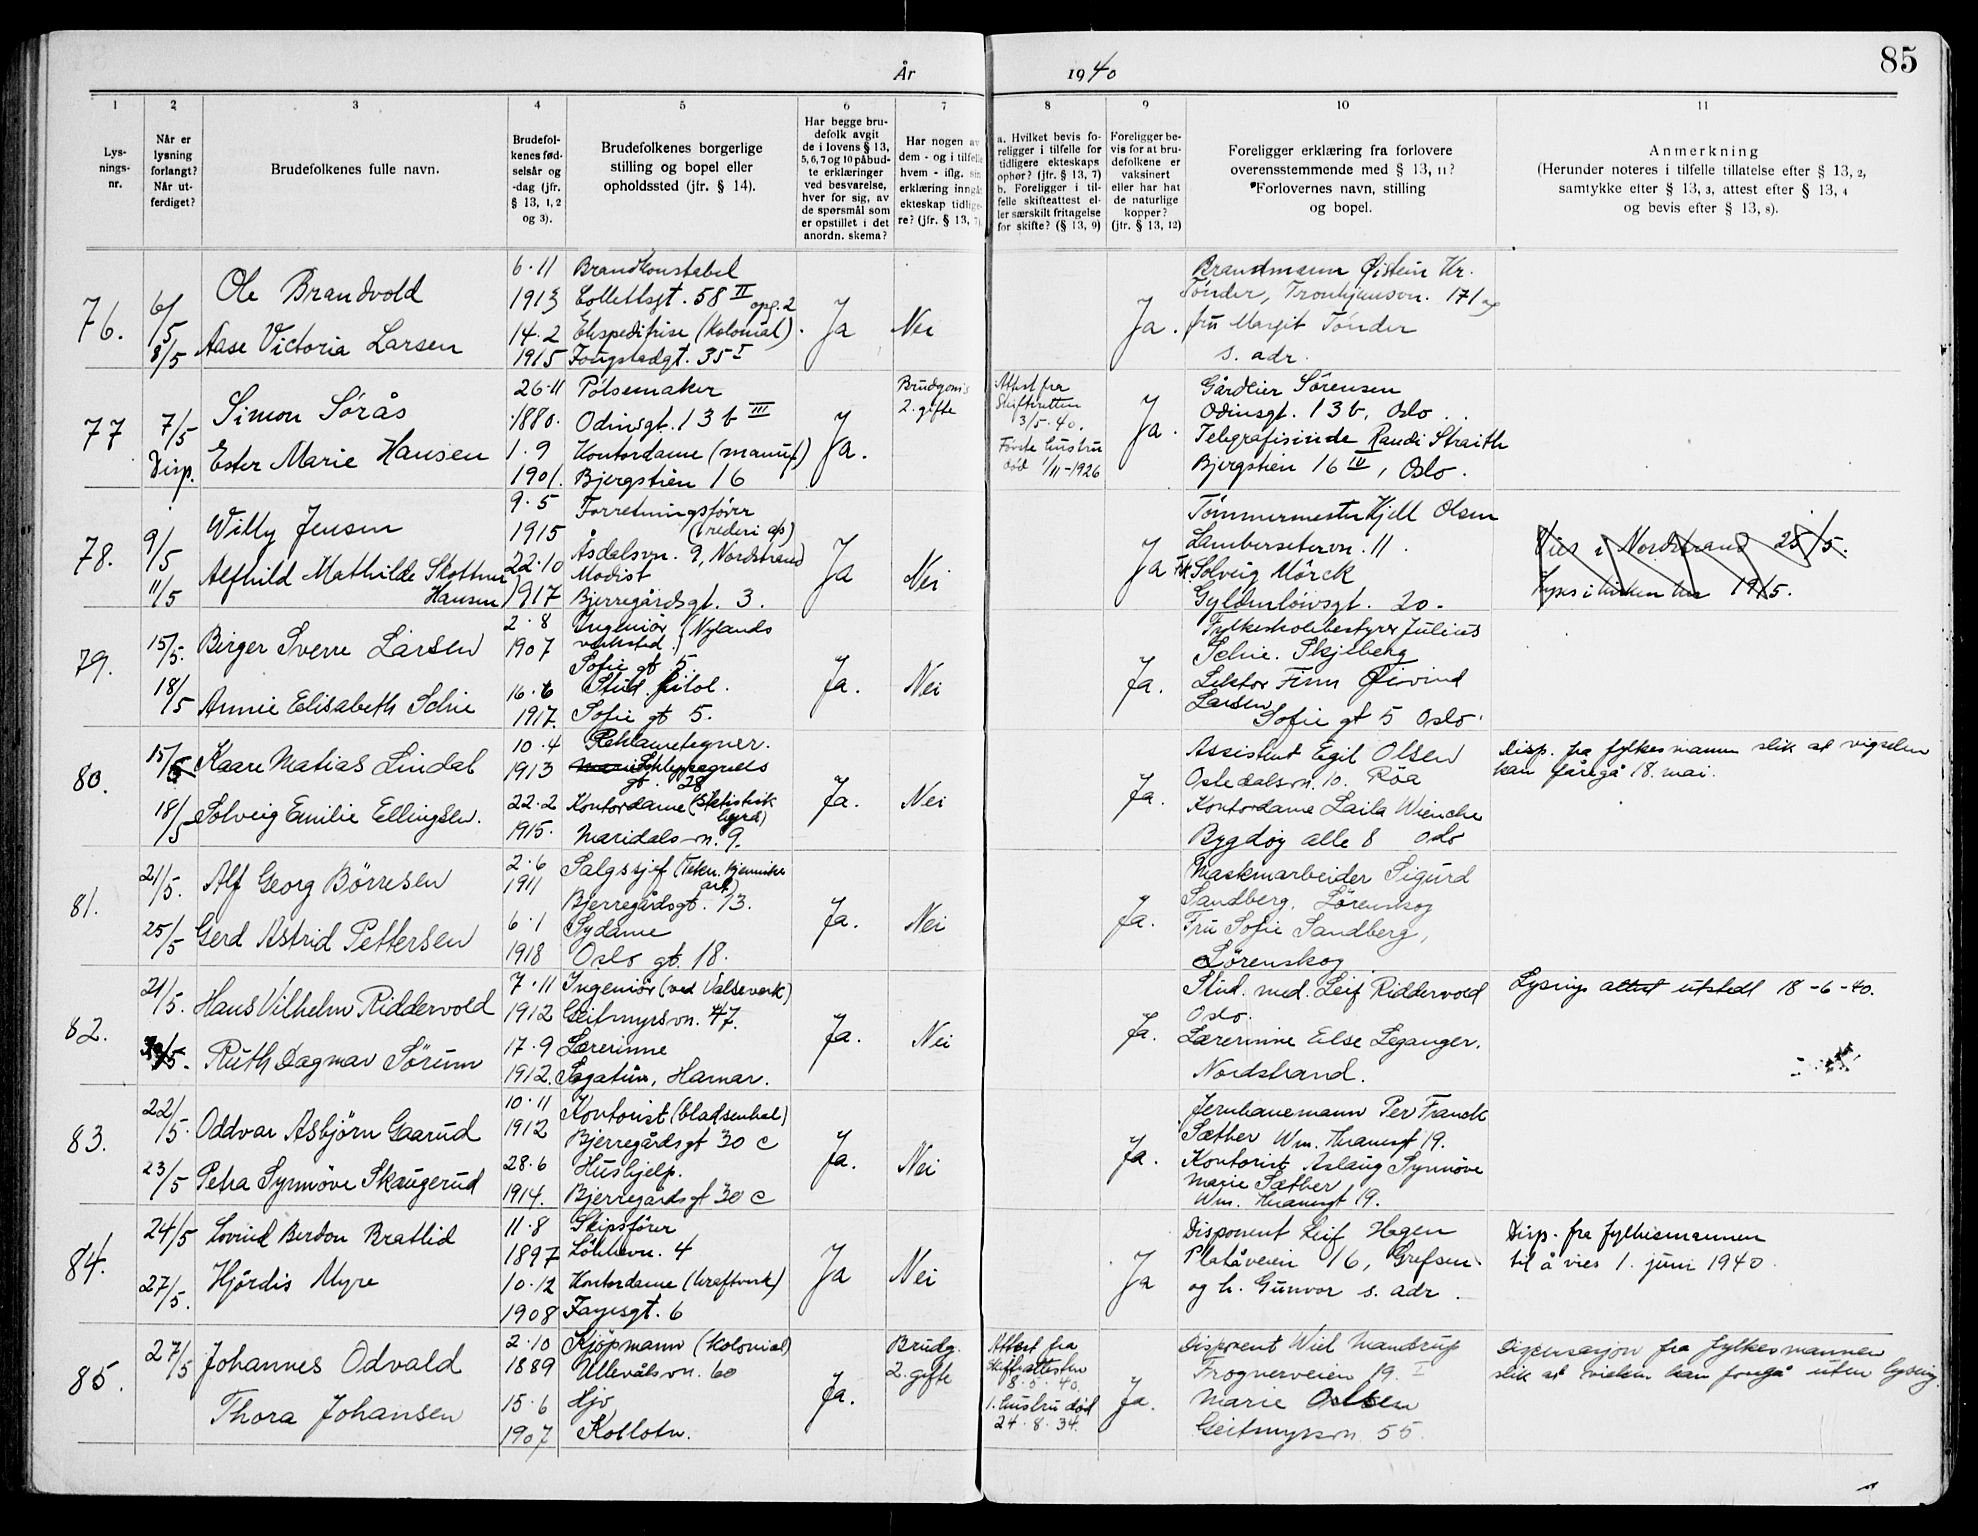 85
År 1940
1 2 3 4 5 6 7 8 9 10 11
Lys-
nings-
nr.
Når er
lysning
forlangt?
Når ut-
ferdiget?
Brudefolkenes fulle navn.
Brudefol-
kenes fød-
selsår og
-dag (jfr.
§ 13, 1, 2
og 3).
Brudefolkenes borgerlige
stilling og bopel eller
opholdssted (jfr. § 14).
Har begge bru-
defolk avgit
de i lovens § 13,
5, 6, 7 og 10 påbud-
te erklæringer
ved besvarelse,
hver for sig, av
de spørsmål som
er opstillet i det
anordn. skema?
Har nogen av
dem - og i tilfelle
hvem - iflg. sin
erklæring inngå
ekteskap tidlige-
re? (jfr. § 13, 7).
a. Hvilket bevis fo-
religger i tilfelle for
tidligere ekteskaps
ophør? (jfr. § 13, 7)
b. Foreligger i til-
felle skifteattest el-
ler særskilt fritagelse
for skifte? (§ 13, 9)
Foreligger be-
vis for at bru-
defolkene er
vaksinert
eller har hat
de naturlige
kopper?
(jfr. § 13, 12)
Foreligger erklæring fra forlovere
overensstemmende med § 13, 11?
Forlovernes navn, stilling
og bopel.
Anmerkning
(Herunder noteres i tilfelle tillatelse efter § 13, 2,
samtykke efter § 13, 3, attest efter § 13, 4
og bevis efter § 13, 8).
76.
6/5
8/5
Ole Brandvold
Aase Victoria Larsen
6·11
1913
14·2
1915
Brandkonstabel
Collettsgt. 58 II
opg. 2
Ekspeditrise (Kolonial).
Fougstadgt. 35 I
Ja
Nei
Ja.
Brandmann Øistein Kr.
Tønder, Tronhjemsvn. 171 og
fru Margit Tønder
s. adr.
77
7/5
Disp.
Simon Sørås
Ester Marie Hansen
26·11
1880.
1·9
1901.
Pølsemaker
Odinsgt. 13 b III
Kontordame (manuf)
Bjergstien 16
Ja.
Brudgom's
2. gifte
Attest fra
Skifteretten
3/5·40.
Første hustru
død 1/11-1926
Ja.
Gårdeier Sørensen
Odinsgt. 13 b, Oslo.
Telegrafistinde Randi Straith
Bjergstien 16 IV, Oslo.
78.
9/5
11/5
Willy Jensen
Alfhild Mathilde Skottun
Hansen
9·5
1915
22·10
1917
Forretningsfører
(rederi a/s)
Åsdalsvn. 9, Nordstrand
Modist
Bjerregårdsgt. 3.
Ja
Nei
Ja
Tømmermester Kjell Olsen
Lambersetervn. 11.
Frk. Solveig Mörck
Gyldenløvsgt. 20.
Vies i Nordstrand 25/5.
Lyses i kirken her 19/5.
79.
15/5.
18/5
Birger Sverre Larsen
Annie Elisabeth Schie
2·8
1907
16·6
1917.
Ingeniør (Nylands
verksted.)
Sofie gt 5.
Stud. filol.
Sofie gt 5.
Ja.
Nei
Ja.
Fylkesskolebestyrer Julius
Schie. Skjeberg
Lektor Finn Øivind
Larsen
Sofie gt 5 Oslo.
80.
15/5
18/5
Kaare Matias Lindal
Solveig Emilie Ellingsen.
10·4
1913
22·2
1915.
Reklametegner.
Schleppegrells
gt. 28
Kontordame (Statistisk
byrå)
Maridalsvn. 9.
Ja.
Nei
Ja.
Assistent Egil Olsen
Osledalsvn. 10. Röa
Kontordame Laila Wiencke
Bygdøy alle 8 Oslo
Disp. fra fylkesmann slik at vigselen
kan foregå 18. mai.
81.
21/5.
25/5
Alf Georg Börresen
Gerd Astrid Pettersen
2·6
1911
6·1
1918
Salgssjef (Tekn. kjemiske
art)
Bjerregårdsgt. 13.
Sydame
Oslo gt. 18.
Ja.
Nei
Ja.
Maskinarbeider Sigurd
Sandberg. Lörenskog
Fru Sofie Sandberg,
Lörenskog
82.
21/5.
Hans Vilhelm Riddervold
Ruth Dagmar Sörum
7·11
1912
17·9
1912.
Ingeniör (ved Valseverk)
Geitmyrsvn. 47.
Lærerinne
Sagatun, Hamar.
Ja.
Nei
Ja.
Stud. med. Leif Riddervold
Oslo.
Lærerinne Else Leganger.
Nordstrand.
Lysings attest utstedt 18-6-40.
83.
22/5.
23/5
Oddvar Asbjörn Gaarud
Petra Synnöve Skaugerud
10·11
1912
28·6
1914.
Kontorist (bladsentral)
Bjerregårdsgt 30 c
Hushjelp.
Bjerregårdsgt 30 c
Ja.
Nei
Ja.
Jernbanemann Per Franck
Sæther Wm. Thranesgt 19.
Kontorist Aslaug Synnöve
Marie Sæther
Wm. Thranesgt 19.
84.
24/5
27/5.
Bratlid
Hjørdis Myre
11·8
1897
10·12
1908
Skipsfører
Løkkevn. 4
Kontordame (kraftverk)
Fayesgt. 6
Ja
Nei
Ja
Disponent Leif Hagen
Platåveien 16, Grefsen
og h. Gunvor s. adr.
Disp. fra fylkesmannen
til å vies 1. juni 1940.
85.
27/5
Johannes Odvald
Thora Johansen
2·10
1889
15·6
1907
Kjöpmann (kolonial)
Ullevålsvn. 60
Hjv
Kolbotn.
Ja.
Brudg.
2. gifte
Attest fra
skifteattesten
8·5·40.
1. hustru död
24·8·34.
Ja.
Disponent Wiel Mandrup
Frognerveien 19. I
Marie Olsen
Geitmyrsvn 55.
Dispensasjon fra fylkesmannen
slik at vielsen kan foregå uten lysing.